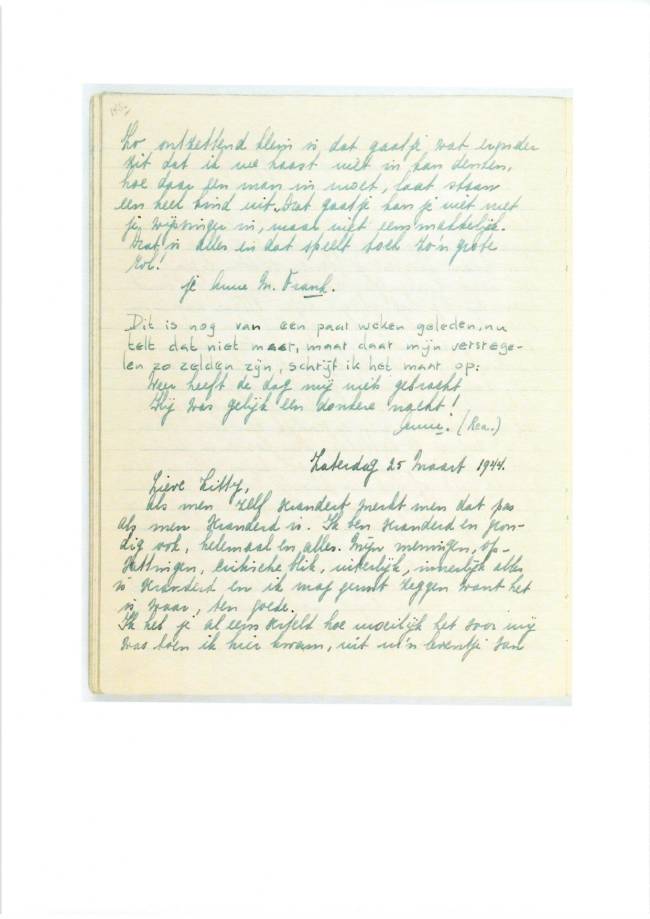 Zo ontzettend klein is dat gaatje, wat eronder
zit dat ik me haast niet in kan denken,
hoe daar een man in moet, laat staan
een heel kind uit. Dat gaatje kan je niet met
je wijsvinger in, maar niet eens makkelijk.
Dat is alles en dat speelt toch zo'n grote
rol!
je Anne M. Frank.
Dit is nog van een paar weken geleden, nu
telt dat niet meer, maar daar mijn versrege-
len zo zelden zijn, schrijf ik het maar op:
Weer heeft de dag mij niets gebracht
Hij was gelijk een donkere nacht!
Anne. (Rea.)
Zaterdag 25 Maart 1944.
Lieve Kitty,
Als men zelf verandert merkt men dat pas
als men veranderd is. Ik ben veranderd en gron-
dig ook, helemaal en alles. Mijn meningen, op-
vattingen, critische blik, uiterlijk, innerlijk alles
is veranderd en ik mag gerust zeggen want het
is waar, ten goede.
Ik heb je al eens verteld hoe moeilijk het voor mij
was toen ik hier kwam, uit m'n leventje van